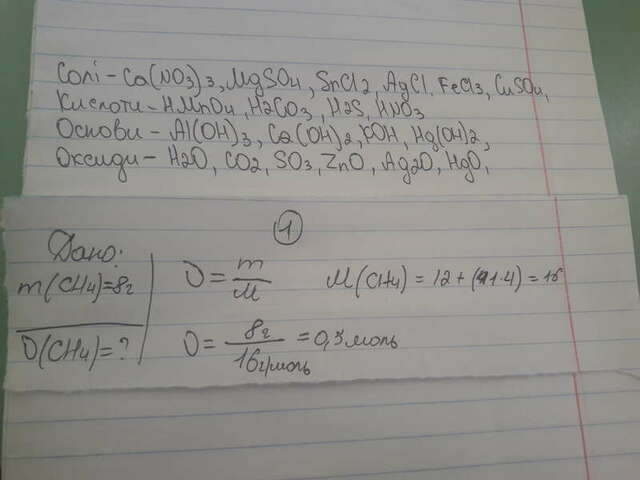 Солі - Ca(NO3)3, MgSO4, SnCl2, AgCl, FeCl3, CuSO4,
Кислоти - HMnO4, H2CO3, H2S, HNO3
Основи - Al(OH)3, Ca(OH)2, KOH, Hg(OH)2,
Оксиди - H2O, CO2, SO3, ZnO, Ag2O, HgO,
1
Дано:
m(CH4)=8г
υ(CH4)=?
υ = m/M M(CH4) = 12 + (1·4) = 16
υ = 8г/16г/моль = 0,5моль